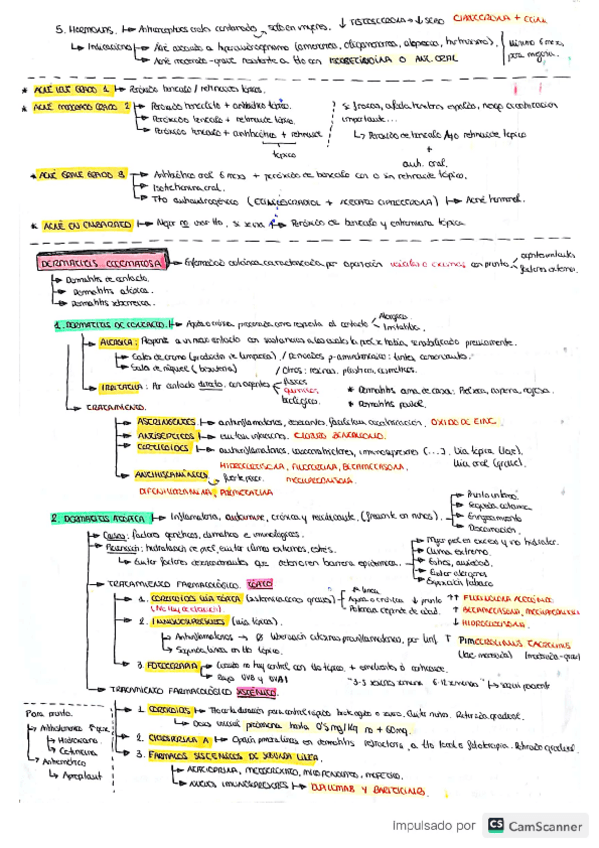 5. HORMONAS. Anticonceptivos orales combinados, solo en mujeres. ↓ TESTOSTERONA → ↓ SEBO CIPROTERONA +
Indicaciones Acné asociado a hiperandrogenismo (amenorrea, oligomenorrea, alopecia, hirsutismo). Mínimo 6 meses
Acné moderado-grave resistente a tto con ISOTRETINOINA O ANT. ORAL para mejora.
* ACNÉ LEVE GRADO 1 Peróxido benzoilo / retinoides tópicos.
* ACNÉ MODERADO GRADO 2 Peróxido benzoilo + antibiótico tópico. Si fracasa, afecta hombros espalda, riesgo cicatrización
Peróxido benzoilo + retinoide tópico. importante...
Peróxido benzoilo + antibiótico + retinoide Peróxido de benzoilo retinoide tópico
tópico +
antb. oral.
* ACNÉ GRAVE GRADO 3 Antibiótico oral 6 meses + peróxido de benzoilo con o sin retinoide tópico.
Isotretinoína oral.
Tto antiandrogénico (ETINILESTRADIOL + ACETATO CIPROTERONA) Acné hormonal.
* ACNÉ EN EMBARAZO Mejor no usar tto, si se usa Peróxido de benzoilo y eritromicina tópica
DERMATITIS ECCEMATOSA Enfermedad cutánea caracterizada por aparición vesículas o eccemas con prurito
factores externos.
Dermatitis de contacto.
Dermatitis atópica.
Dermatitis seborreica.
1. DERMATITIS DE CONTACTO Aguda o crónica, provocada como respuesta al contacto Alérgica
Irritativa.
ALÉRGICA: Responde a un nuevo contacto con sustancias a las cuales la piel se había sensibilizado previamente.
Sales de cromo (productos de limpieza). / Derivados p-aminobenzoico: tintes,
Sales de níquel (bisutería) / Otros: resinas, plásticos, cosméticos.
IRRITATIVA: Por contacto directo, con agentes físicos
químicos * Dermatitis ama de casa:
biológicos * Dermatitis pañal.
TRATAMIENTO.
ASTRINGENTES antiinflamatorios, desecantes, facilitan cicatrización, OXIDO DE ZINC
ANTISÉPTICOS evitan infecciones. CLORURO BENZALCONIO.
CORTICOIDES antiinflamatorios, vasoconstrictores, inmunosupresores (...). Vía tópica (leve).
HIDROCORTISONA, FLUOCINOLONA, BETAMETASONA, Vía oral (grave).
ANTIHISTAMÍNICOS fuerte picor. METILPREDNISOLONA.
DIFENHIDRAMINA, PROMETACINA
2. DERMATITIS ATÓPICA Inflamatoria, autoinmune, crónica y recidivante. (frecuente en niños). Prurito intenso
Sequedad cutánea
Engrosamiento
Descamación.
Causas: factores genéticos, climáticos e inmunológicos.
Prevención: hidratación de piel, evitar climas extremos, estrés. Clima extremo.
Evitar factores desencadenantes que deterioren barrera epidérmica. Estrés, ansiedad.
Evitar alérgenos
Exposición tabaco
TRATAMIENTO FARMACOLÓGICO TÓPICO
1. CORTICOIDES VÍA TÓPICA 1ª línea
Aguda o crónica ↓ prurito
Potencia depende de edad. ↑ BETAMETASONA, METILPREDNISOLONA
↓ HIDROCORTISONA.
2. INMUNOSUPRESORES (vía tópica).
Antiinflamatorios → liberación citocinas proinflamatorias, por linf T PIMECROLIMUS TACROLIMUS
Segunda línea en tto tópico. (leve moderada) (moderada-grave)
3. FOTOTERAPIA Cuando no hay control con tto tópico.
Rayo UVB y UVA1 "3-5 sesiones semana 6-12 semanas" según paciente
TRATAMIENTO FARMACOLÓGICO SISTÉMICO.
Para prurito
Antihistamínico
Hidroxicina
Cetirizina
Antiemético
Aprepitant
1. CORTICOIDES Tto corta duración para control rápido brote agudo o grave. Evitar niños. Retirada gradual.
Dosis inicial prednisona hasta 0'5 mg/kg no + 60mg.
2. CICLOSPORINA A Opción primera línea en dermatitis refractaria, a tto local o fototerapia. Retirada gradual.
3. FÁRMACOS SISTÉMICOS DE SEGUNDA LÍNEA.
AZATIOPRINA, METOTREXATO,
NUEVOS INMUNOSUPRESORES DUPILUMAB Y BARICITINIB.
Impulsado por CS CamScanner